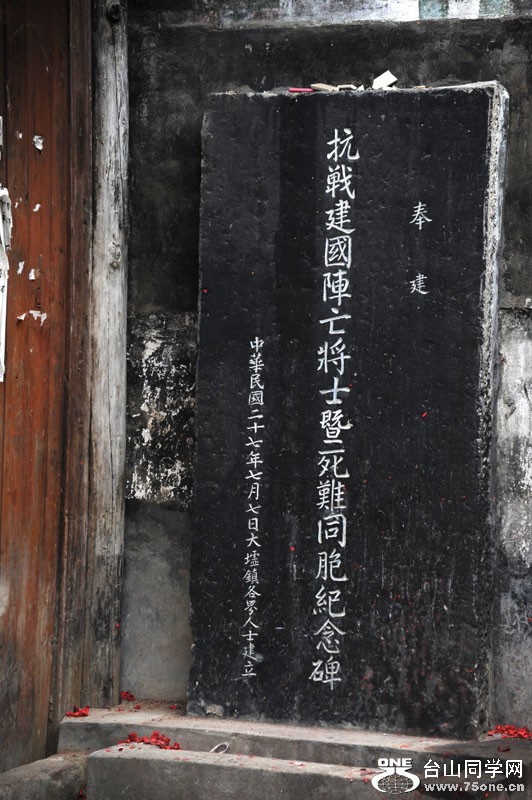 奉建
抗戰建國陣亡將士暨死難同胞紀念碑
中華民國二十七年七月七日大墟鎮各界人士建立
ONE
台山同学网
www.75one.cn